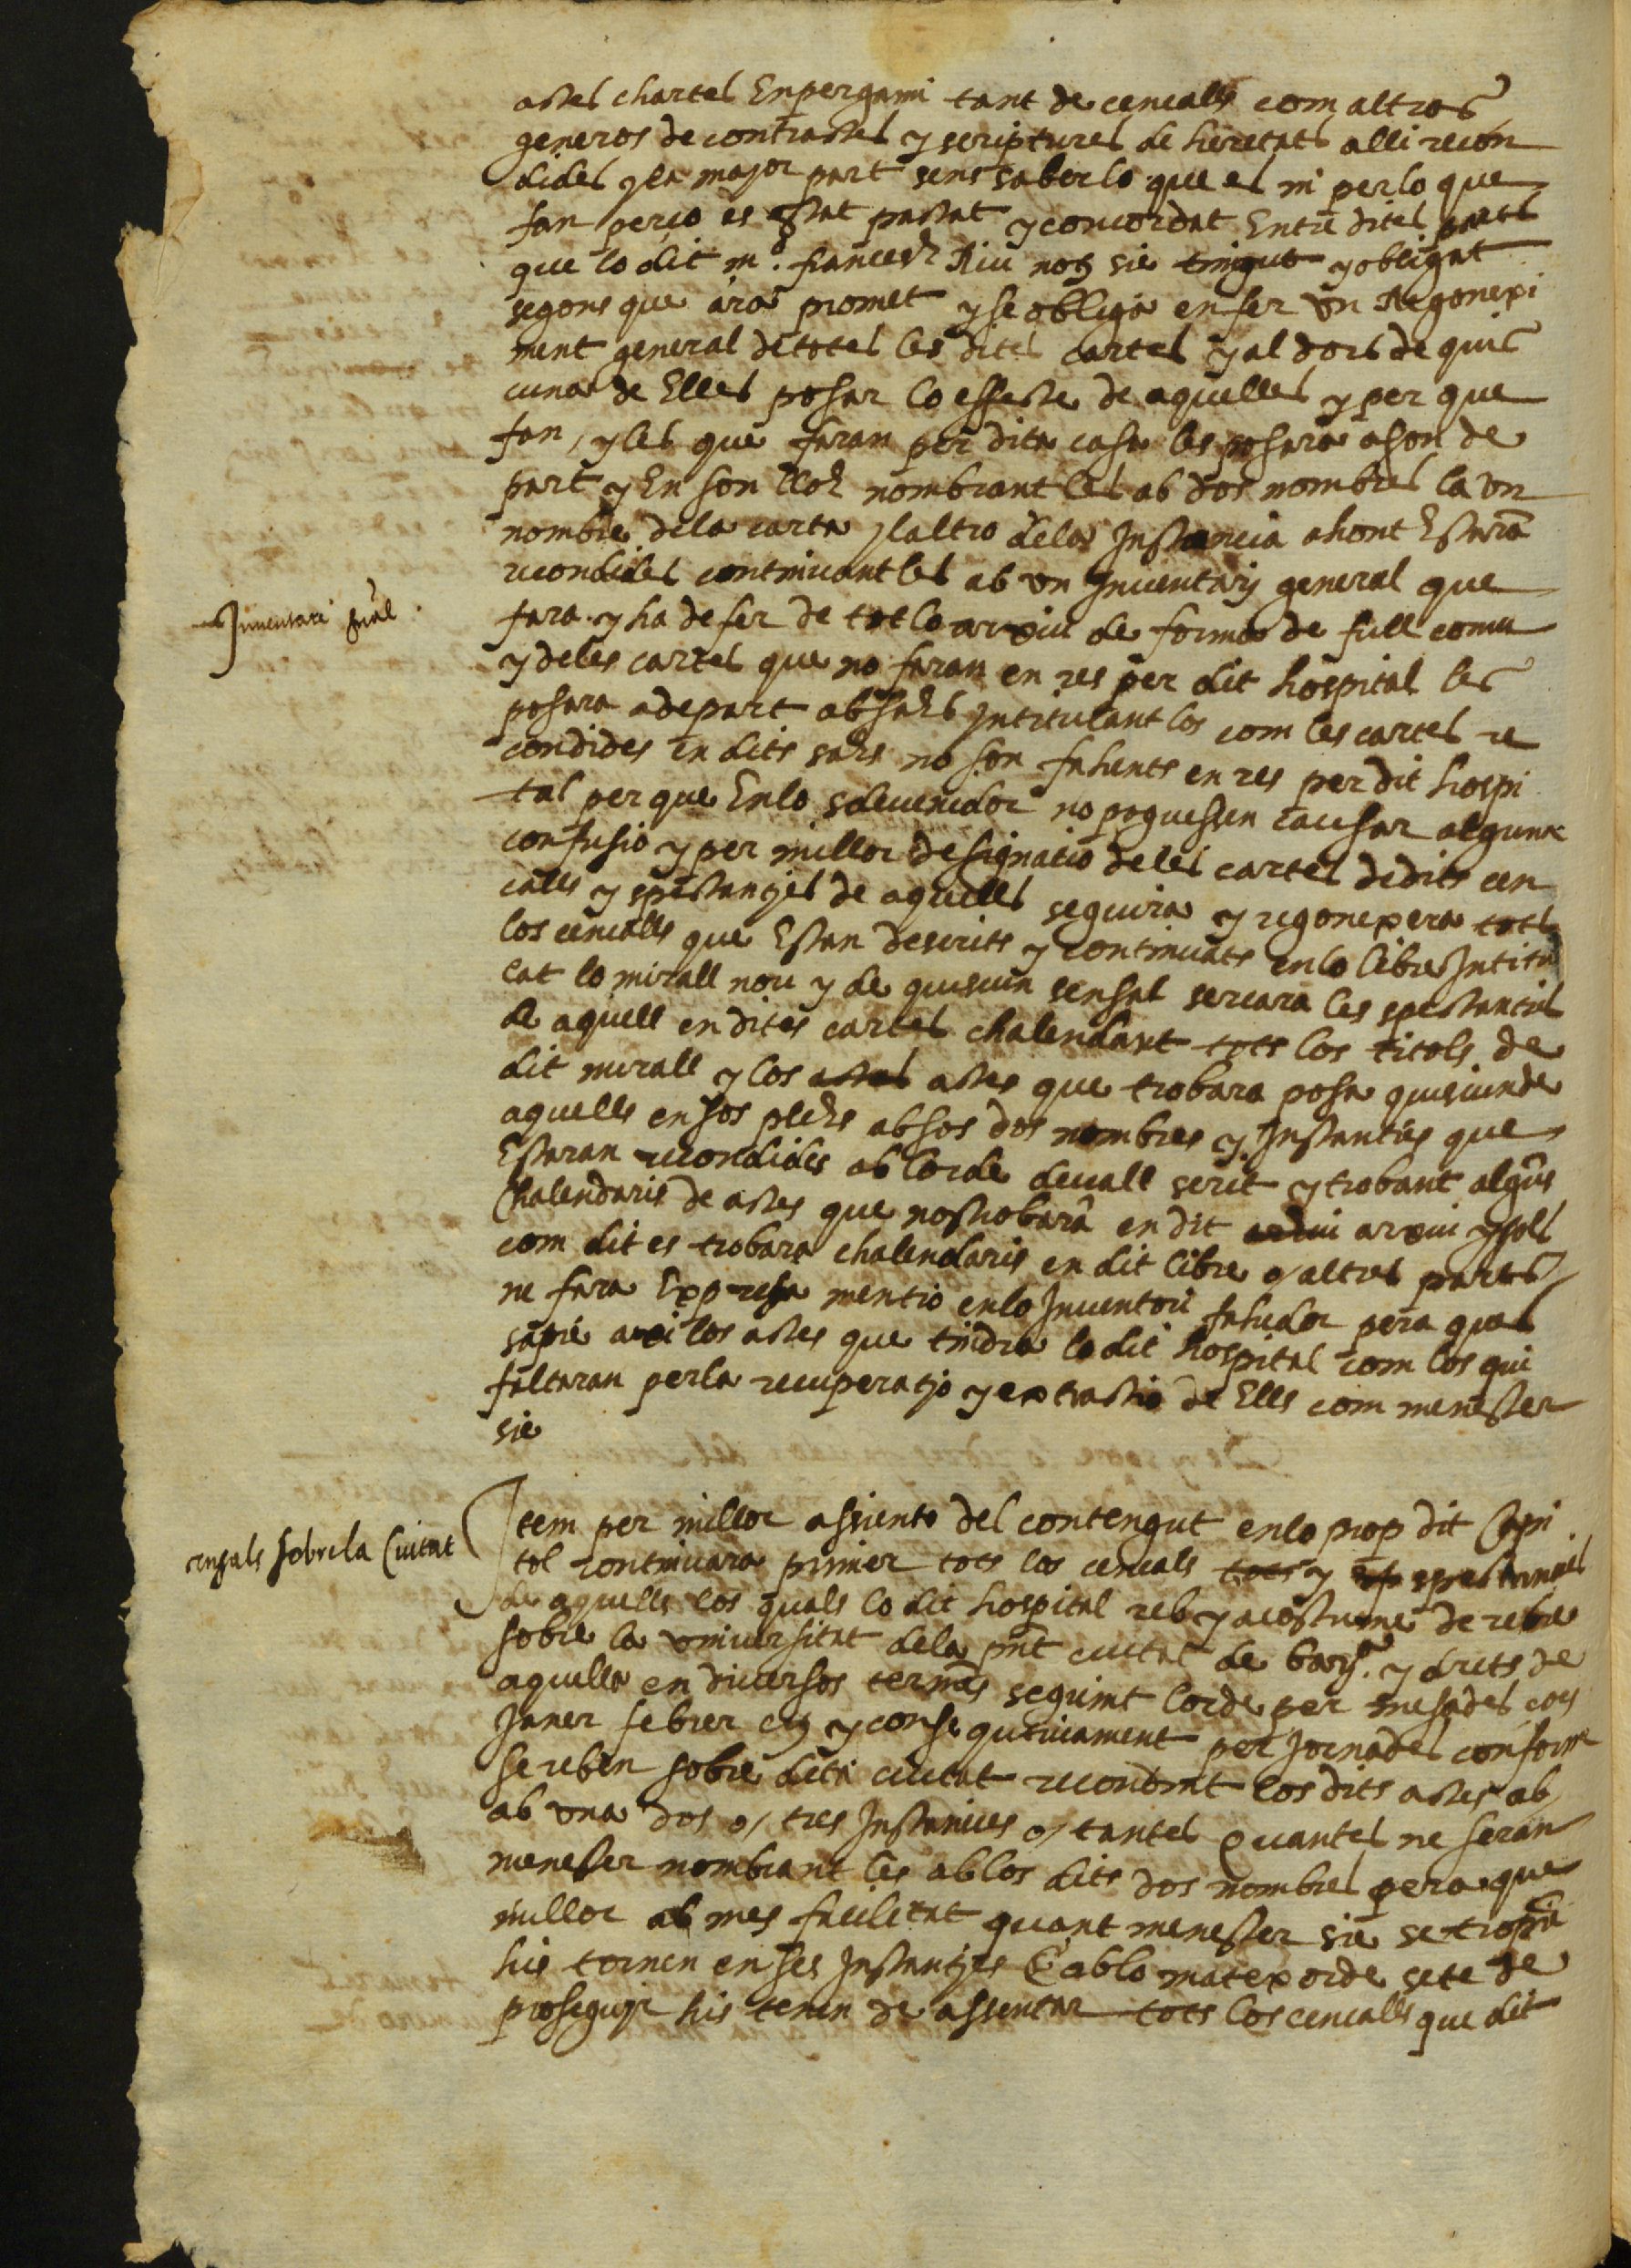 actes chartes En pergami tant de censalls com altros
generos de contractes y scriptures de heretats alli recon
dides y la major part sens saber lo que es ni per lo que
fan perço es estat pactat y concordat Entre dites parts
que lo dit m.º francesch Riu not.ʳ sie tingut y obligat
segons que ara promet y se obliga en fer un Regonexi
ment general de totes les dites cartes y al dors de quis
cuna de Elles posar lo effecte de aquelles y per que
fan, y les que faran per dita casa les posara a son de
part y En son lloch nombrant les ab dos nombres la un
nombre de la carta y laltro de la Instancia ahont Estarā
recondides continuant les ab un Inventarij general que
Inventari gñal
fara y ha de fer de tot lo arxiu de forma de full comu
y de les cartes que no faran en res per dit hospital les
posara a de part ab sachs Intitulant los com les cartes re
condides en dits sachs no son fahents en res per dit hospi
tal per que En lo sdevenidor no poguessen causar alguna
confusio y per millor designatio de les cartes de dits cen
calls y spectantjes de aquelles seguira y regonexera tots
los censalls que Estan descrits y continuats en lo libre Intitu
lat lo mirall nou y de quiscun sensal sercara les spectancies
de aquell en dites cartes chalendant tots los titols de
dit mirall y los actes actes que trobara posa quiscun de
aquells en sos plechs ab sos dos nombres y Instanties que
Estaran recondides ab lorde devall scrit y trobant algūs
Chalendaris de actes que nos trobarā en dit arxiu y sols
com dit es trobara chalendaris en dit libre o/ altres parts
ne fara Expressa mentio en lo Inventari fahedor pera ques
sapie axi los actes que tindra lo dit hospital com los qui
faltaran per la recuperatjo y extractio de Ells com menester
sie
Item per millor assiento del contengut en lo prop dit Capi
censals sobre la Ciutat
tol continuara primer tots los censals tots y spectancies
de aquells los quals lo dit hospital reb y acostume de rebre
sobre la universitat de la pnt ciutat de barⁿᵃ. y drets de
aquella en diversos termēs seguint lorde per mesades ço es
Janer febrer etc y consequtivament per Jornades conforme
se reben sobre dita ciutat recondint los dits actes ab
ab una dos o/ tres Instancies o/ tantes quantes ne seran
menester nombrant les ab los dits dos nombres pera que
millor ab mes facilitat quant menester sie se tropiē
his tornen en ses Instantjes E ab lo matex orde se te de
proseguir his tenen de assentar tots los censalls que dit